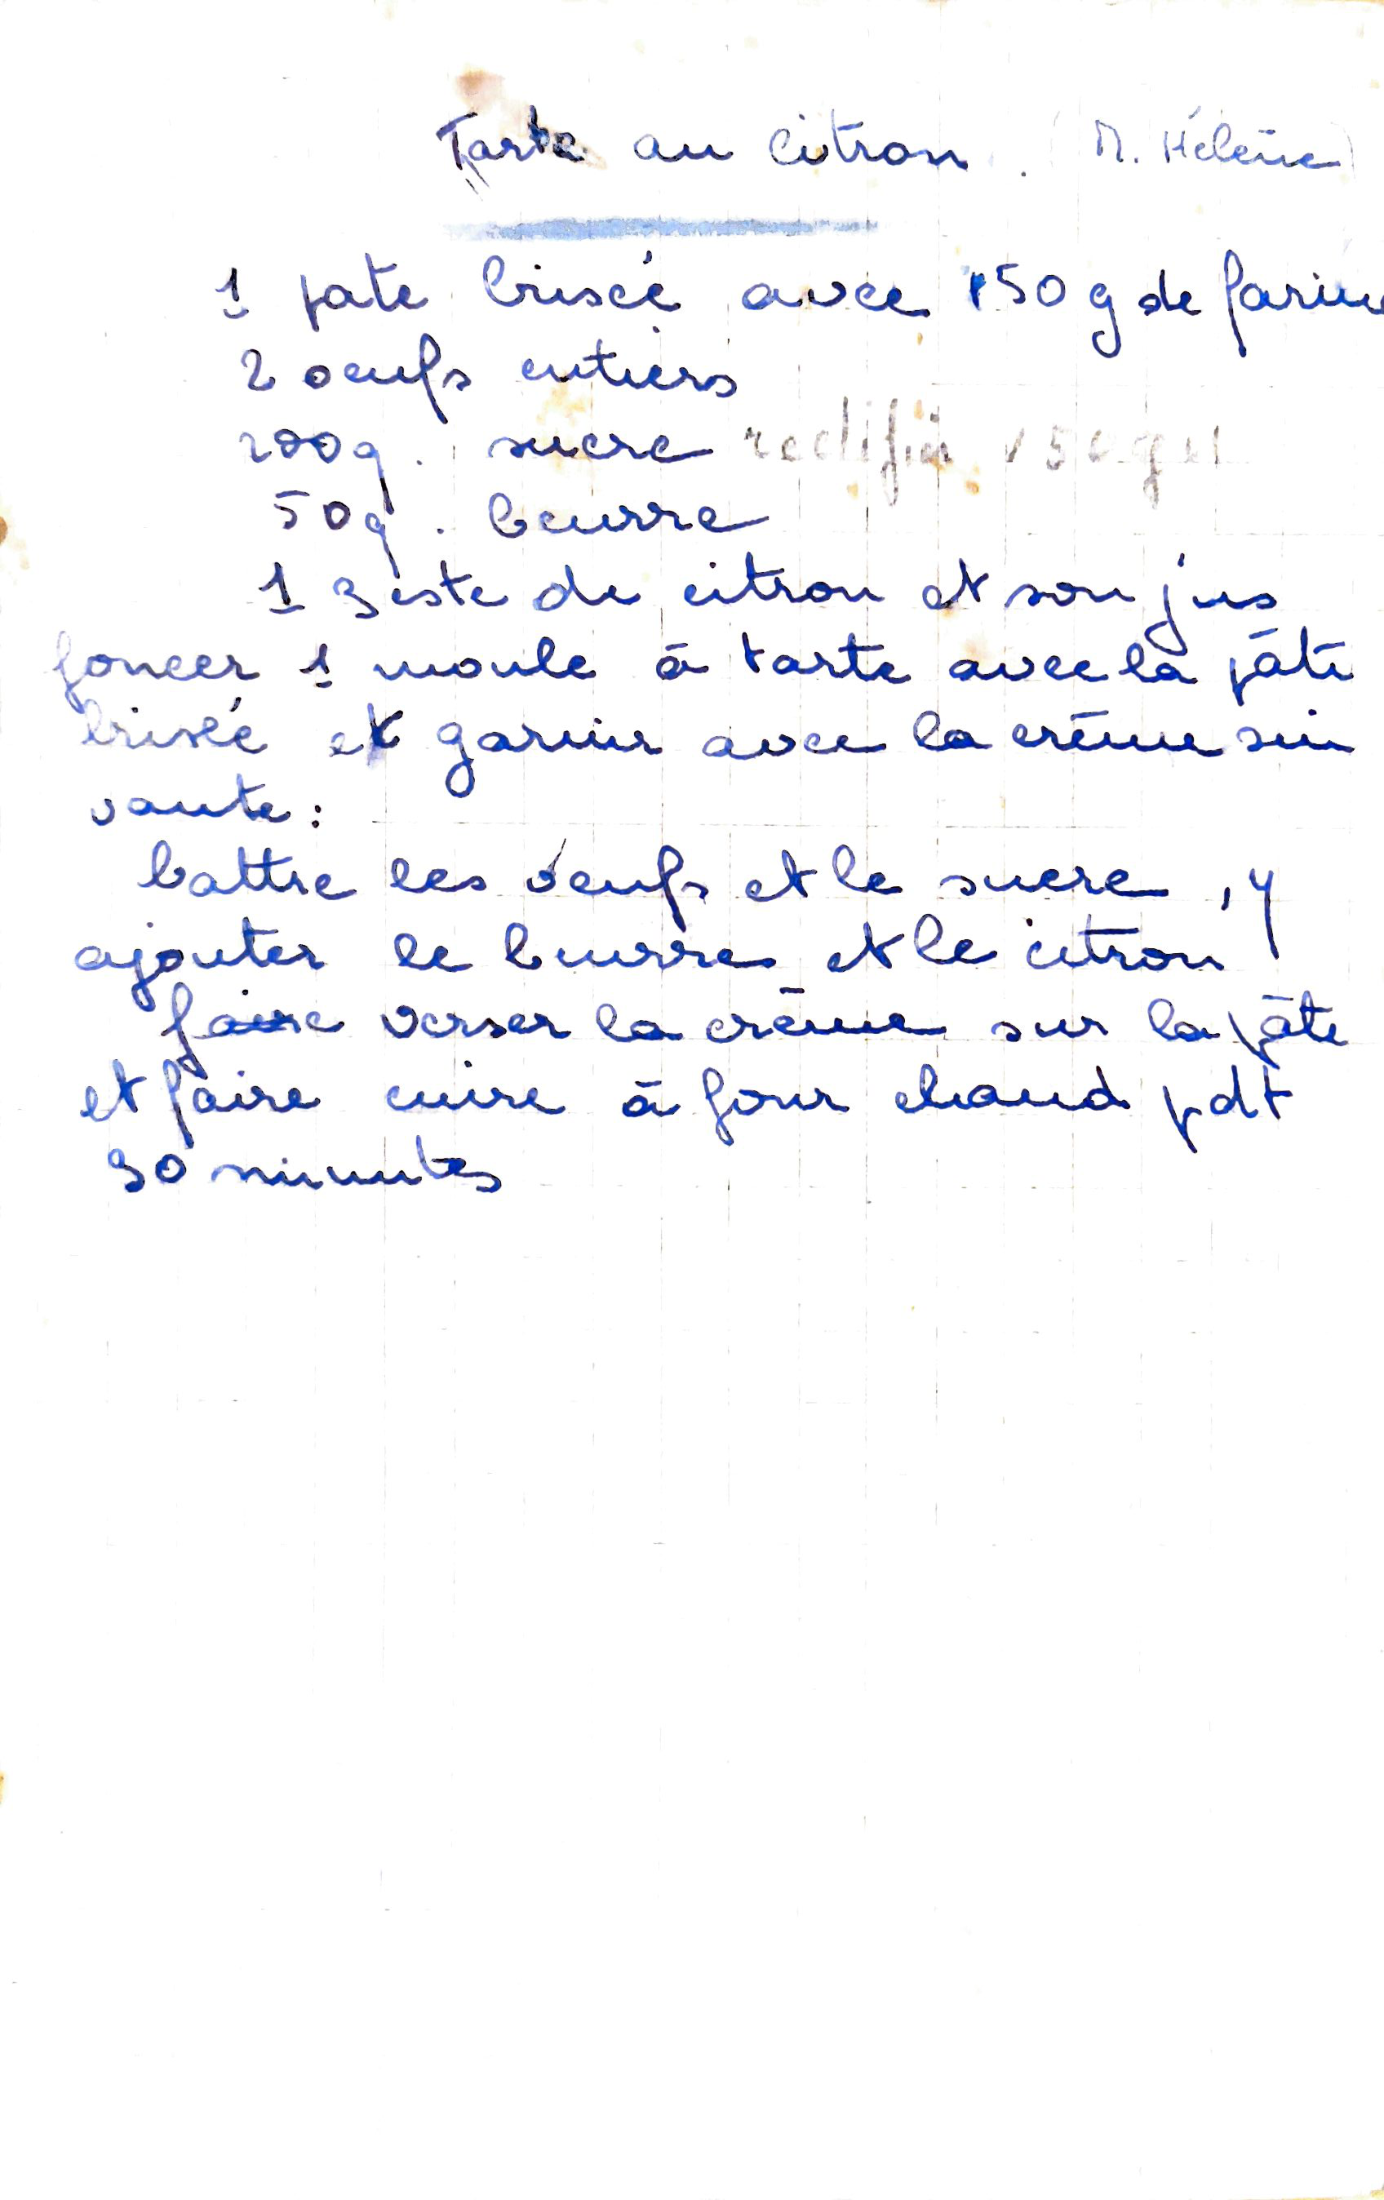 Tarte au citron. (M. Hélène)
1 pate brisée avec 150 g de farine
2 oeufs entiers
200g. sucre rectifié 150 gr
50g. beurre
1 zeste de citron et son jus
foncer 1 moule à tarte avec la pâte
brisée et garnir avec la crème sui
vante:
battre les oeufs et le sucre, y
ajouter le beurre et le citron
faire verser la crème sur la pâte
et faire cuire à four chaud pdt
30 minutes